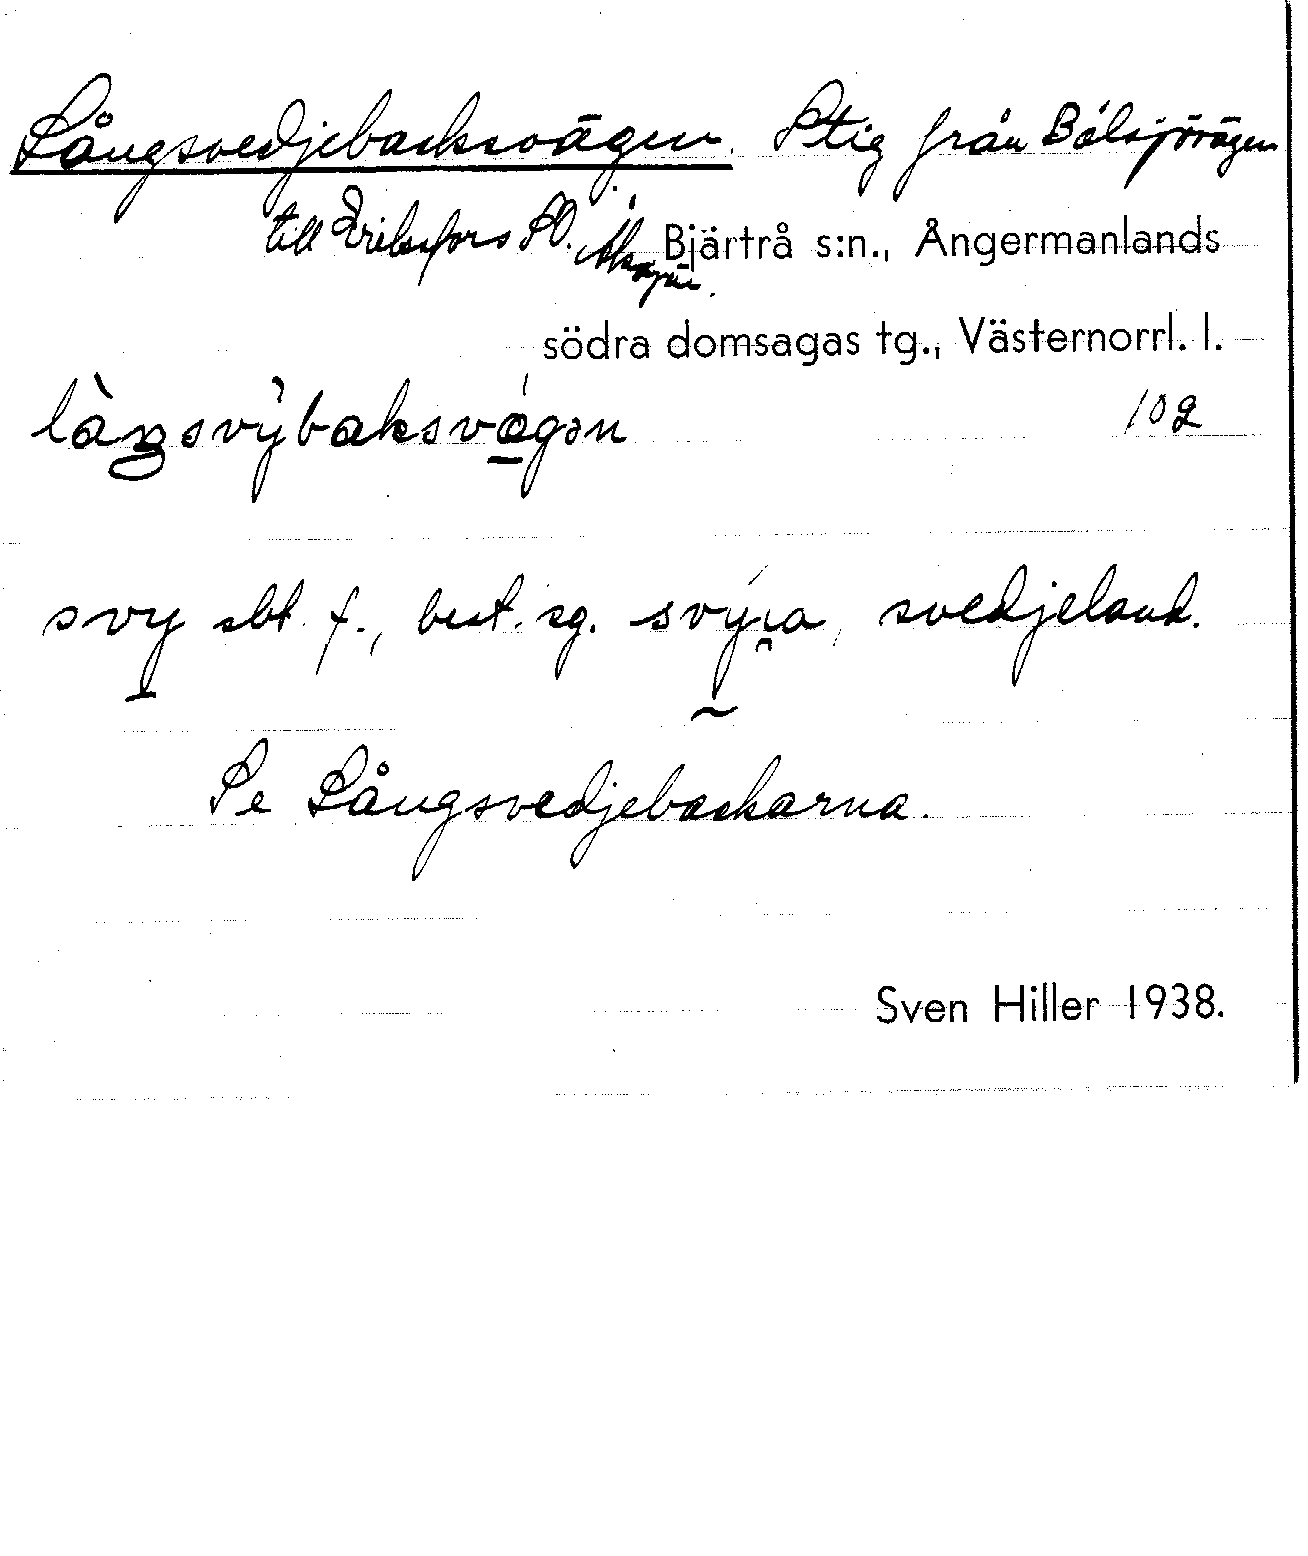 Långsvedjebacksvägen. Stig från Bålsjövägen
till Eriksfors SO.
Bjärtrå s:n., Ångermanlands
södra domsagas tg., Västernorrl. l.
làŋsvy̆baksvǻgən 102
svy sbt. f., best. sg. svýı̯a, svedjeland.
Se Långsvedjebackarna.
Sven Hiller 1938.